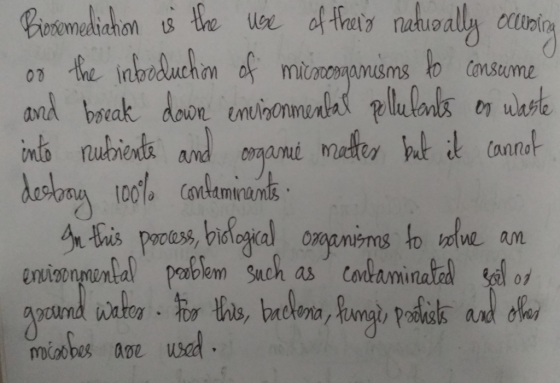 Bioremediation is the use of their naturally occuring
or the introduction of microorganisms to consume
and break down environmental pollutants or waste
into nutrients and organic matter but it cannot
destroy 100% contaminants.
In this process, biological organisms to solve an
environmental problem such as contaminated soil or
ground water. For this, bacteria, fungi, protists and other
microbes are used.